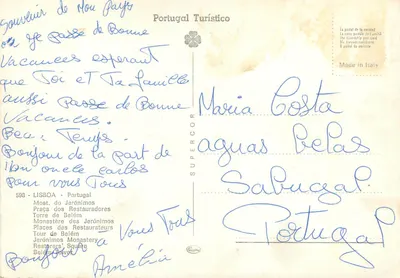 Portugal Turístico
Souvenir de Mon Pays
ou Je passe de Bonne
Vacances esperant
que Toi et Ta famille
aussi Passe de Bonne
Vacances.
Beau Temps.
Bonjour de la part de
Mon oncle Carlos
pour vous Tous
Bonjour a Vous Tous
Amélia
Maria Costa
aguas belas
Sabugal
Portugal
SUPERCOR
Made in Italy
550 - LISBOA - Portugal
Most. do Jerónimos
Praça dos Restauradores
Torre de Belém
Monastère des Jerónimos
Places des Restaurateurs
Tour de Belém
Jerónimos Monastery
Restorers' Square